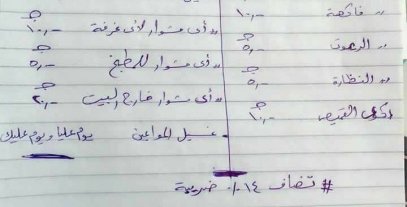 〃 فاكهة ١٠,- ج
〃 الريموت ٥,- ج
〃 النظارة ٥,- ج
كوى القميص ١٠,- ج
〃 أى مشوار لأى غرفة ١٠,- ج
〃 أى مشوار للمطبخ ٥,- ج
〃 أى مشوار خارج البيت ٢٠,- ج
- غسيل المواعين يوم عليا ويوم عليك
# تضاف ١٤٪ ضريبة